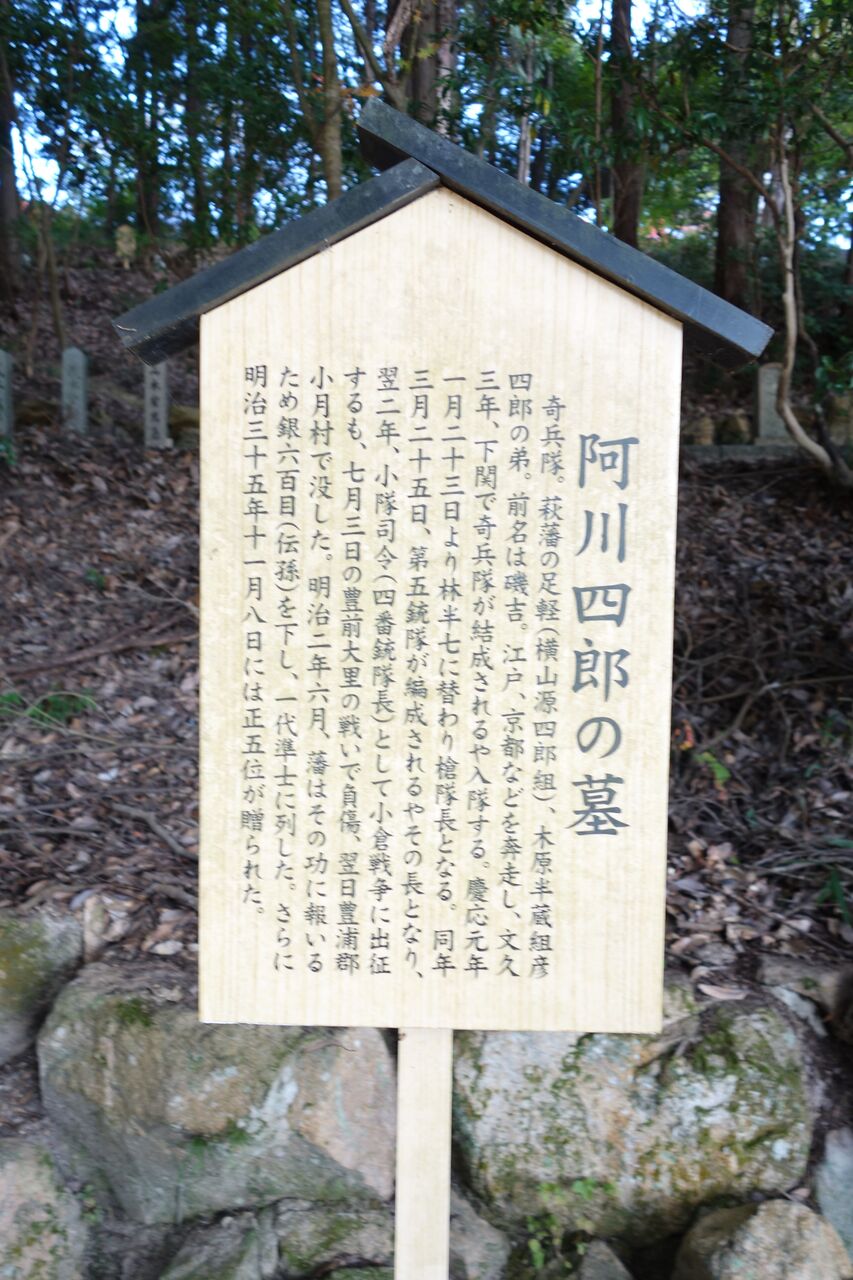 阿川四郎の墓
奇兵隊。萩藩の足軽(横山源四郎組)、木原半蔵組彦
四郎の弟。前名は磯吉。江戸、京都などを奔走し、文久
三年、下関で奇兵隊が結成されるや入隊する。慶応元年
一月二十三日より林半七に替わり槍隊長となる。同年
三月二十五日、第五銃隊が編成されるやその長となり、
翌二年、小隊司令(四番銃隊長)として小倉戦争に出征
するも、七月三日の豊前大里の戦いで負傷、翌日豊浦郡
小月村で没した。明治二年六月、藩はその功に報いる
ため銀六百目(伝孫)を下し、一代準士に列した。さらに
明治三十五年十一月八日には正五位が贈られた。